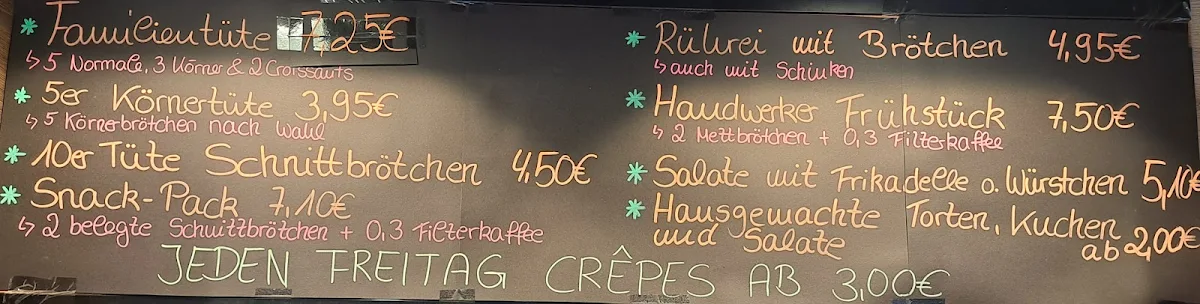 * Familientüte 7,25€
↳ 5 Normale, 3 Körner & 2 Croissants
* 5er Körnertüte 3,95€
↳ 5 Körnerbrötchen nach Wahl
* 10er Tüte Schnittbrötchen 4,50€
* Snack-Pack 7,10€
↳ 2 belegte Schnittbrötchen + 0,3 Filterkaffee
* Rührei mit Brötchen 4,95€
↳ auch mit Schinken
* Handwerker Frühstück 7,50€
↳ 2 Mettbrötchen + 0,3 Filterkaffee
* Salate mit Frikadelle o. Würstchen 5,10€
* Hausgemachte Torten, Kuchen
und Salate ab 2,00€
JEDEN FREITAG CRÊPES AB 3,00€